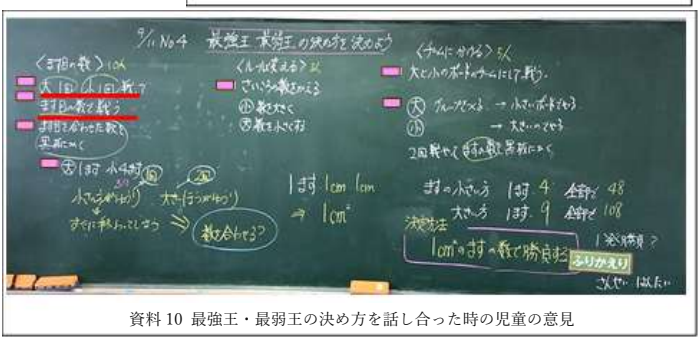 9/11 No4 最強王 最弱王の決め方を決めよう
〈ます目の数〉10人
大1回 小1回戦う
ます目の数で戦う
ます目で合わせた数を
黒板にかく
大1ます 小4ます
小さい方がゆうり
大きいほうがゆうり
すぐに終わってしまう
数を合わせる?
〈ルール変える〉
さいころの数をかえる
小 数を大きく
大 数を小さくする
1ます 1cm 1cm
⇒ 1cm²
〈チームに分ける〉5人
大と小のボードのチームにして戦う。
大 グループでつくる → 小さいボードでやる
小 → 大きいのでやる
2回戦やってますの数を黒板にかく
ますの小さい方 1ます 4 全部で 48
大きい方 1ます 9 全部で 108
決定方法
1cm²のますの数で勝負する
1発勝負?
ふりかえり
さんせい はんたい
資料10 最強王・最弱王の決め方を話し合った時の児童の意見